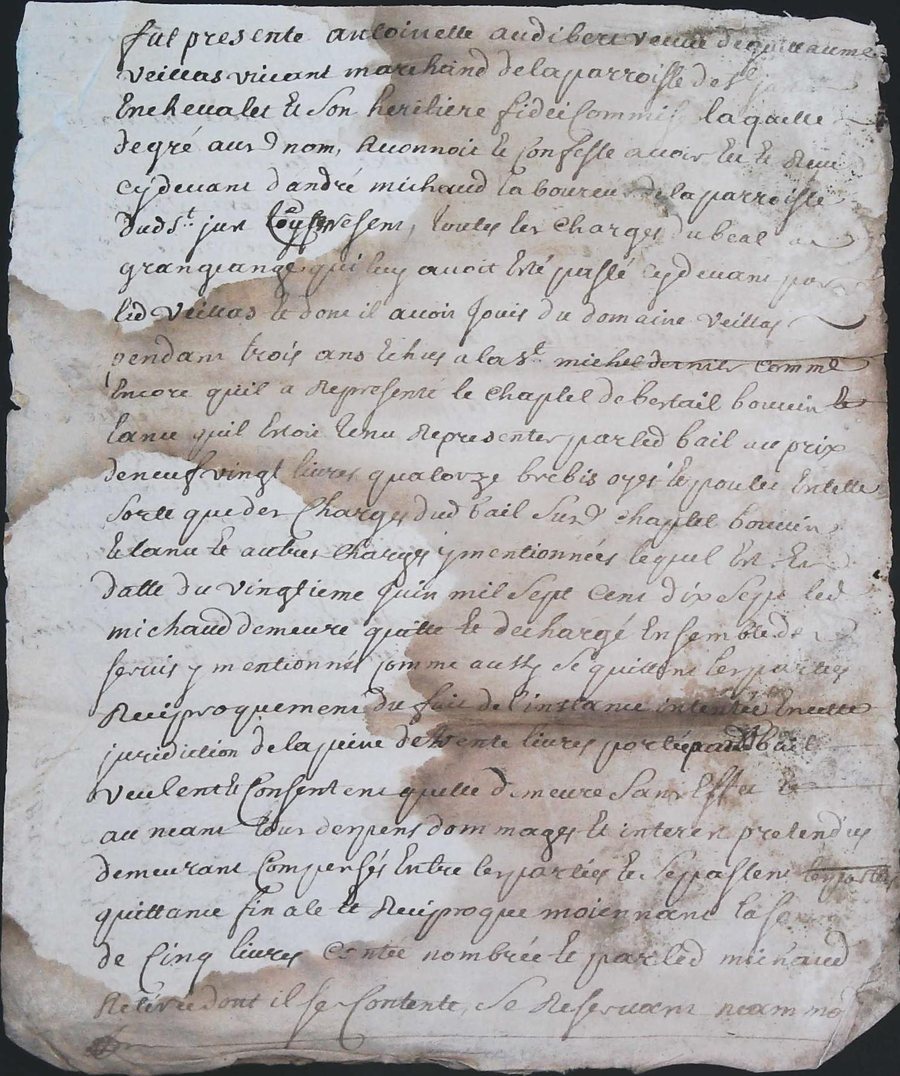 fut presente antoinette audibert veuve de guillaume
veillas vivant marchand de la parroisse de st
En chevalet et son heritiere fidei commis laquelle
de gré aud nom, Reconnoit et confesse avoir eu et Receu
cy devant d'andré michaud laboureur de la parroisse
dud st. just present, toutes les charges du beal
grangeange qui luy avoit Eté passé cy devant par
led veillas et dont il avoit jouis du domaine veillas
pendant trois ans Echus a la st michel dernier comme
Encore quil a Representé le chaptel de bestail bouvin et
lanu quil Estoit tenu Representer par led bail au prix
de neuf vingt livres quatorze brebis oyes et poules En telle
sorte que des charges dud bail sur chaptel bouvin
et lanu et autres charges y mentionnées lequel Est En
datte du vingtieme juin mil sept cent dix sept led
michaud demeure quitte et dechargé Ensemble de
servis y mentionnés comme aussy se quittent les parties
Reciproquement du fait de l'instance intentée En cette
juridiction de la peine de trente livres portée par led bail
veulent et consentent quelle demeure sans Effet et
au neant tous despens dommages et interets pretendus
demeurant compensés Entre les parties et se passent
quittance finale et Reciproque moiennant la somme
de cinq livres contée nombrée et par led michaud
Retirée dont il se contente, se Reservant neammo